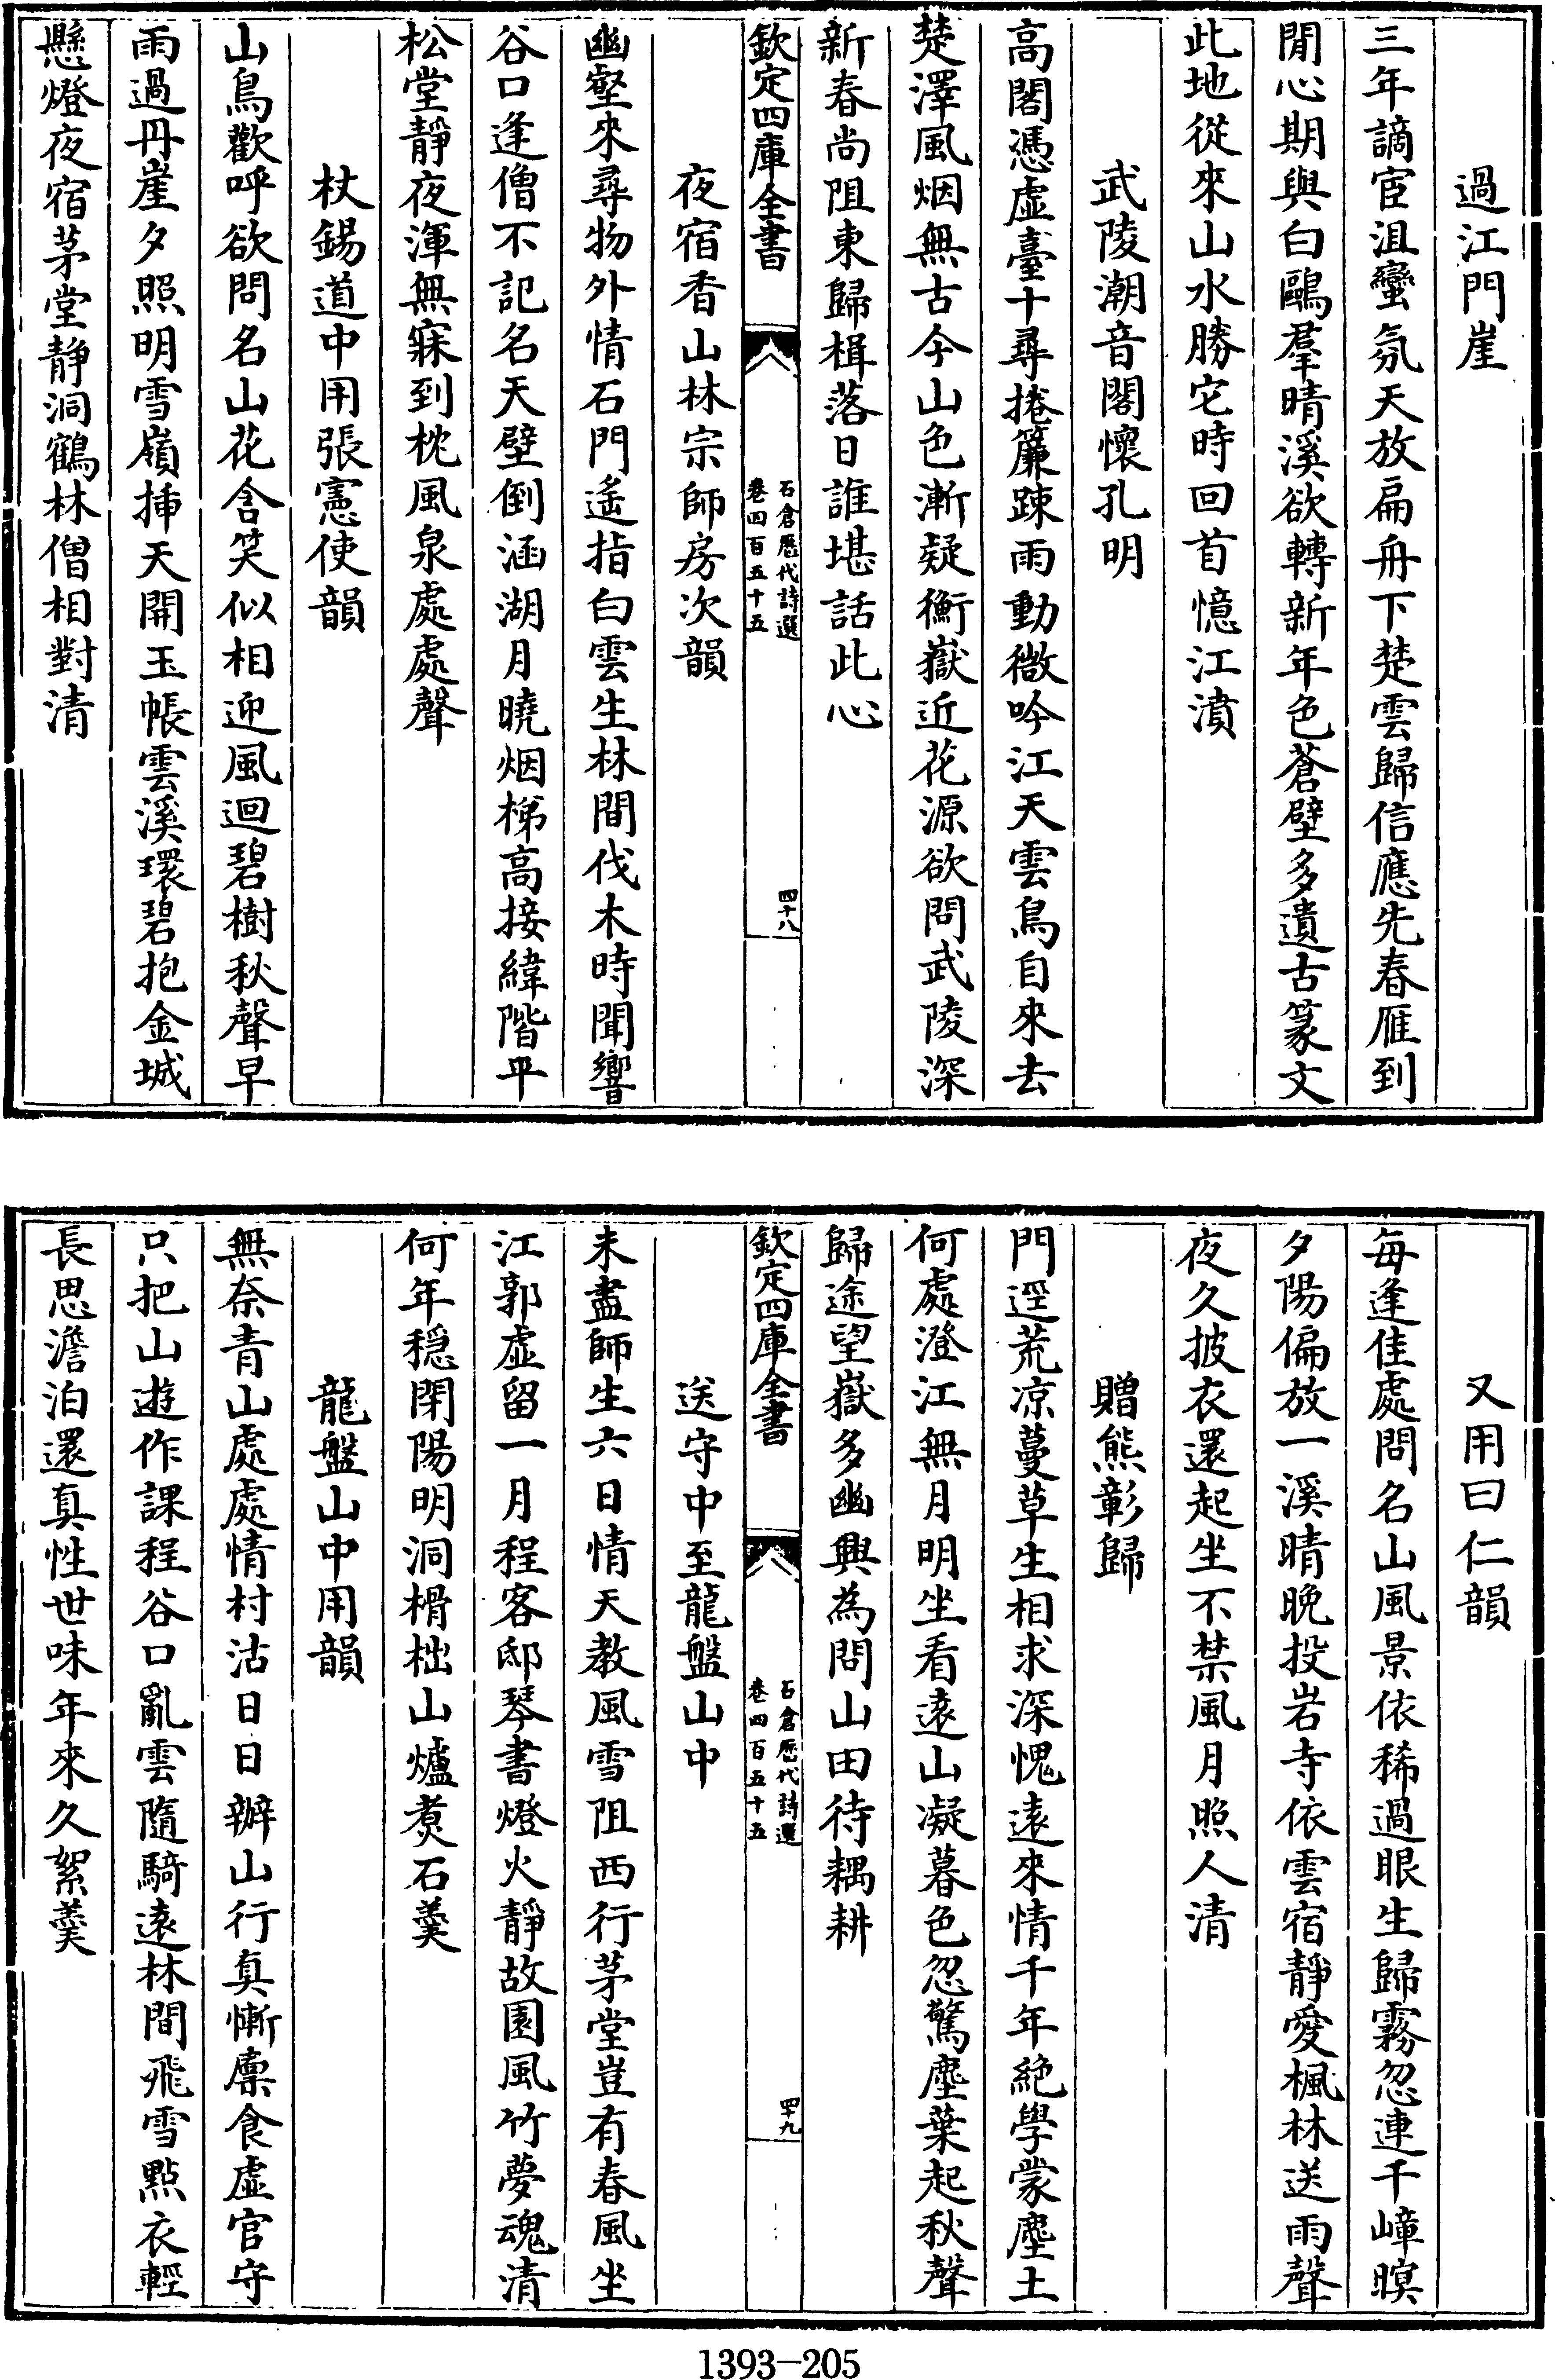 過江門崖
三年謫宦沮蠻氛天放扁舟下楚雲歸信應先春雁到
閒心期與白鷗羣晴溪欲轉新年色蒼壁多遺古篆文
此地從來山水勝它時回首憶江濆
武陵潮音閣懷孔明
高閣憑虛臺十尋捲簾踈雨動微吟江天雲鳥自來去
楚澤風烟無古今山色漸疑衡嶽近花源欲問武陵深
新春尚阻東歸楫落日誰堪話此心
欽定四庫全書
石倉歷代詩選
卷四百五十五
四十八
夜宿香山林宗師房次韻
幽壑來尋物外情石門遙指白雲生林間伐木時聞響
谷口逢僧不記名天壁倒涵湖月曉烟梯高接緯階平
松堂靜夜渾無寐到枕風泉處處聲
杖錫道中用張憲使韻
山鳥歡呼欲問名山花含笑似相迎風迴碧樹秋聲早
雨過丹崖夕照明雪嶺揷天開玉帳雲溪環碧抱金城
懸燈夜宿茅堂靜洞鶴林僧相對清
又用曰仁韻
每逢佳處問名山風景依稀過眼生歸霧忽連千嶂暝
夕陽偏放一溪晴晚投岩寺依雲宿靜愛楓林送雨聲
夜久披衣還起坐不禁風月照人清
贈熊彰歸
門逕荒凉蔓草生相求深愧遠來情千年絕學蒙塵土
何處澄江無月明坐看遠山凝暮色忽驚塵葉起秋聲
歸途望嶽多幽興為問山田待耦耕
欽定四庫全書
石倉歷代詩選
卷四百五十五
四十九
送守中至龍盤山中
未盡師生六日情天教風雪阻西行茅堂豈有春風坐
江郭虛留一月程客邸琴書燈火靜故園風竹夢魂清
何年穩閉陽明洞榾柮山爐煑石羹
龍盤山中用韻
無奈青山處處情村沽日日辦山行真慚廪食虛官守
只把山遊作課程谷口亂雲隨騎遠林間飛雪點衣輕
長思澹泊還真性世味年來久絮羹
1393-205